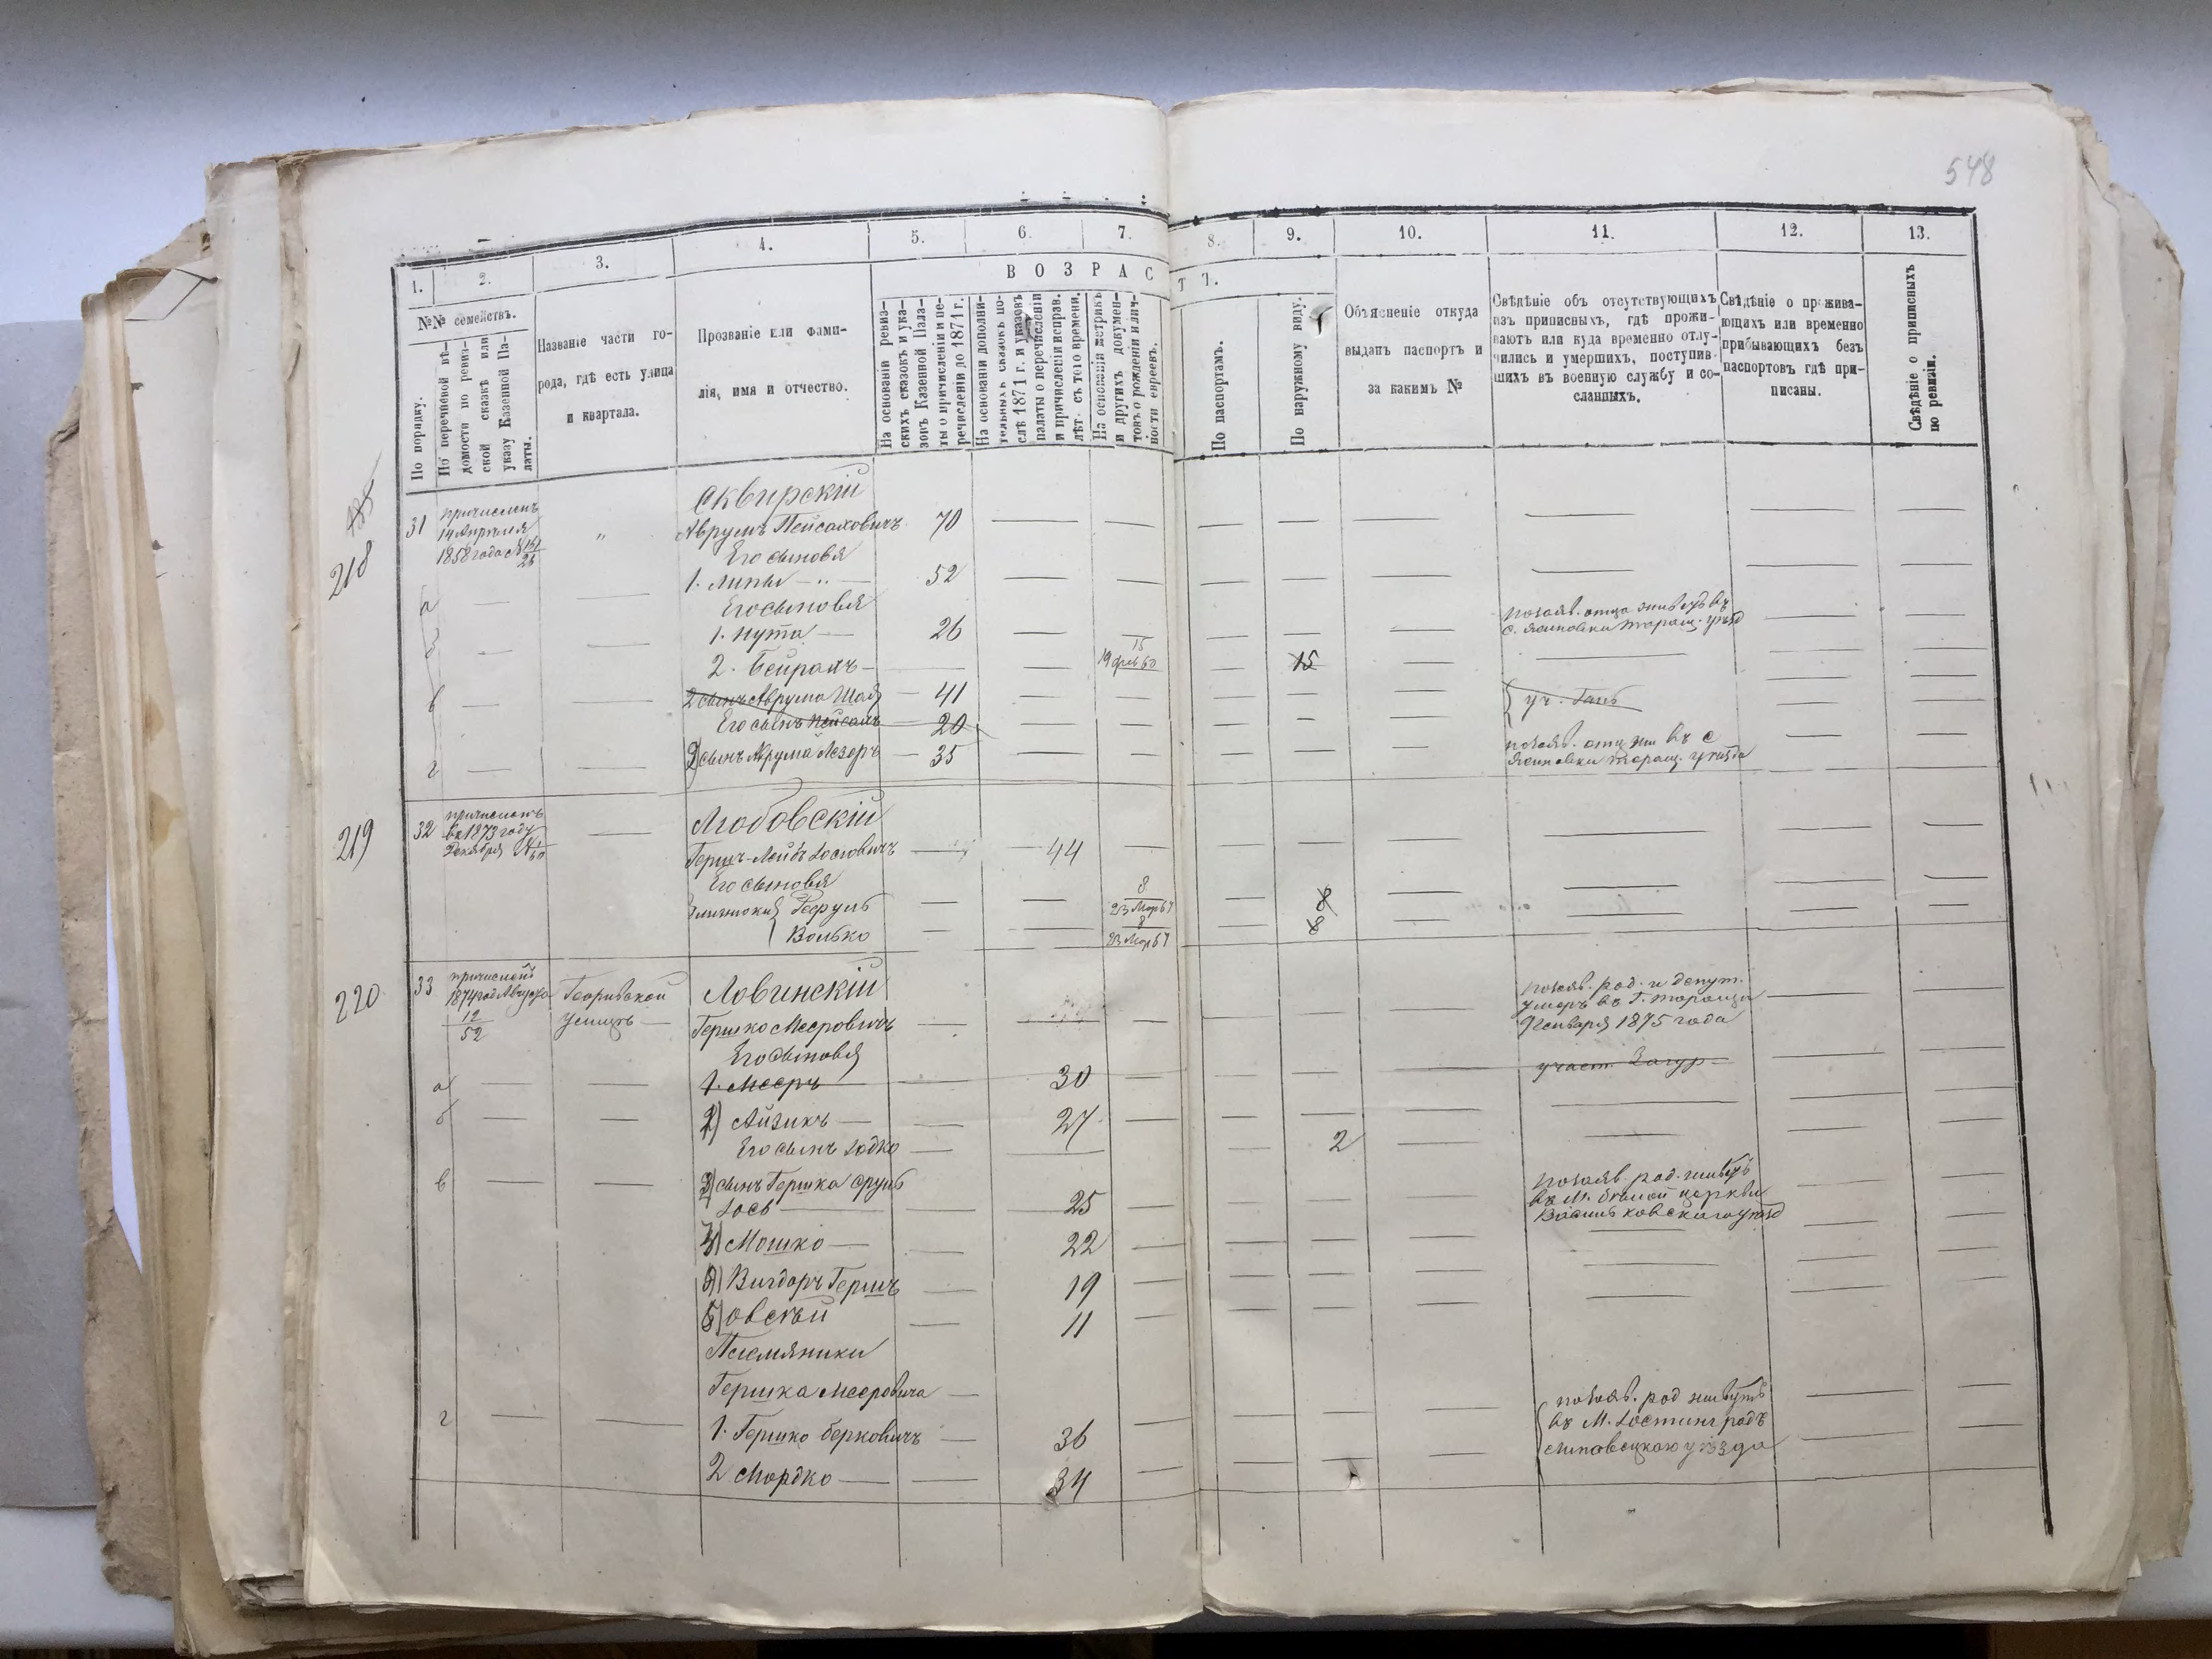 548
1.
2.
3.
4.
5.
6.
7.
8.
9.
10.
11.
12.
13.
ВОЗРАСТ Ъ.
№№ семействъ.
По порядку.
По перечневой вѣ-
домости по ревиз-
ской сказкѣ или
указу Казенной Па-
латы.
Названіе части го-
рода, гдѣ есть улица
и квартала.
Прозваніе или фами-
лія, имя и отчество.
На основаніи ревиз-
скихъ сказокъ и ука-
зовъ Казенной Пала-
ты о причисленіи и пе-
речисленіи до 1871 г.
На основаніи дополни-
тельныхъ сказокъ по-
слѣ 1871 г. и указовъ
палаты о перечисленіи
и причисленіи исправ.
лѣт. съ того времени.
На основаніи метрикъ
и другихъ докумен-
товъ о рожденіи и лич-
ности евреевъ.
По паспортамъ.
По наружному виду.
Объясненіе откуда
выданъ паспортъ и
за какимъ №
Свѣдѣніе объ отсутствующихъ
изъ приписныхъ, гдѣ прожи-
ваютъ или куда временно отлу-
чились и умершихъ, поступив-
шихъ въ военную службу и со-
сланныхъ.
Свѣдѣніе о прожива-
ющихъ или временно
прибывающихъ безъ
паспортовъ гдѣ при-
писаны.
Свѣдѣніе о приписныхъ
по ревизіи.
218
31 причисленъ
14 Апрѣля
1858 года №
Сквирскій
Аврумъ Пейсаховичъ 70
Его сыновя
1. Липы — 52
Его сыновя
а 1. Нута — 26
показ. отца живутъ въ
с. Ясиповки Таращ. уѣзд
2. Бейрамъ — 15 19 фев 60 15
в 2 сынъ Аврума Шая — 41
Его сынъ Пейсахъ 20
г 2) сынъ Аврума Лезеръ — 35
показ. отц жи въ с
Ясиповки Таращ. уѣзда
219
32 причисленъ
въ 1873 году
Декабря
Любовскій
Гершъ-Лейбъ Іосіовичъ — 44
Его сыновя
близнюки Рефулъ 8 23 Мар 67 8
Волько 8 23 Мар 67 8
220
33 причисленъ
1874 год Августа
12
52
улицъ
Ловинскій
Гершко Мееровичъ
показ. род. и депут.
умеръ въ г. Тараща
9 Января 1875 года
Его сыновя
а 1. Мееръ 30
б 2) Айзикъ — 27
Его сынъ Іодко — 2
в 3) сынъ Гершка Срулъ
Іось 25
показ. род. живутъ
въ М. Бѣлой церкви
Васильковскаго уѣзд
Мошко — 22
Вигдоръ Гершъ 19
Овсѣй 11
Племяники
Гершка Мееровича
г 1. Гершко Берковичъ — 36
2 Мордко 34
показ. род живутъ
въ М.
Липовецкаго уѣзда